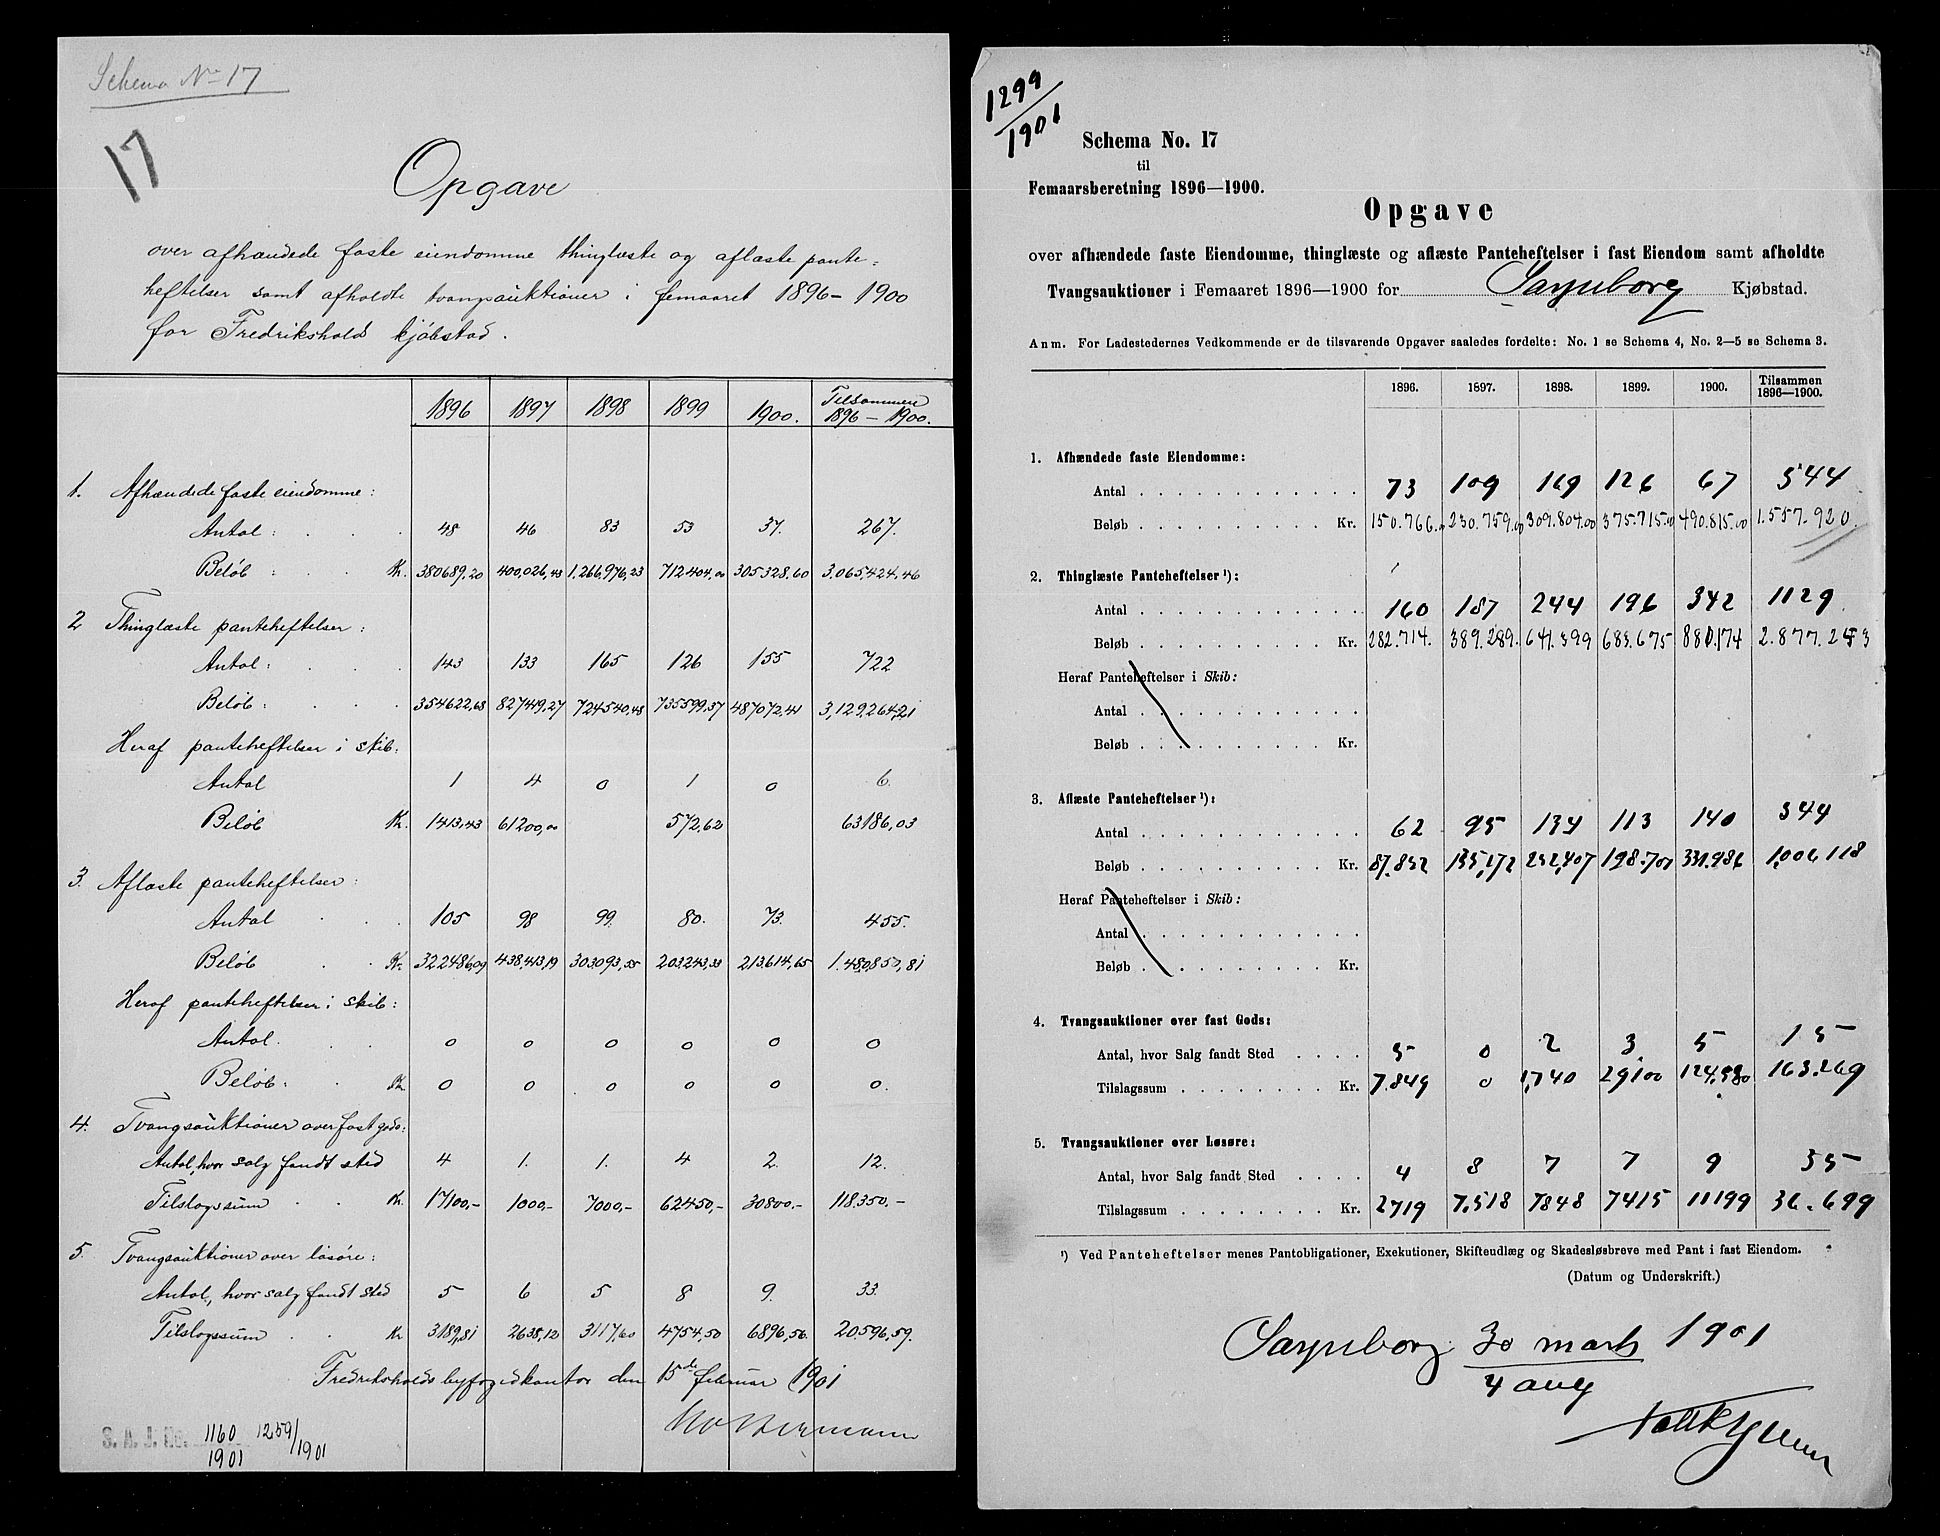 Schema No 17
17
Opgave
over afhændede faste eiendomme thinglæste og aflæste pante-
heftelser samt afholdte tvangsauktioner i femaaret 1896-1900
for Fredrikshald kjøbstad.
1896 1897 1898 1899 1900. Tilsammen 1896-1900.
1. Afhændede faste eiendomme:
Antal: 48 46 83 53 37. 267.
Beløb: Kr. 380689,20 400,026,43 1,266,976,23 712404,00 305328.60 3,065,424,46
2 Thinglæste panteheftelser:
Antal: 143 133 165 126 155 722
Beløb: 354622,68 827449,27 724540,48 735599,37 487072,41 3,129,264,21
Heraf panteheftelser i skib:
Antal 1 4 0 1 0 6.
Beløb Kr. 1413,43 61200,00 572,62 63186,03
3. Aflæste panteheftelser:
Antal 105 98 99. 80. 73. 455.
Beløb Kr. 322486,09 438,413,19 303093,55 203243,33 213614,65 1.480,850,81
Heraf panteheftelser i skib:
Antal. 0 0 0 0 0 0
Beløb: Kr. 0 0 0 0 0 0.
4. Tvangsauktioner over fast gods:
Antal, hvor salg fandt sted 4 1. 1. 4 2. 12.
Tilslagssum Kr. 17100,- 1000,- 7000,- 62450,- 30800,- 118.350.-
5. Tvangsauktioner over løsøre:
Antal, hvor salg fandt sted 5 6 5 8 9. 33.
Tilslagssum Kr 3189,81 2638,12 3117,60 4754,50 6896,56. 20,596,59.
Fredrikshalds byfogedkontor den 15de februar 1901
S. A. J. No. 1160/1901 1259/1901
1299/1901
Schema No. 17
til
Femaarsberetning 1896—1900.
Opgave
over afhændede faste Eiendomme, thinglæste og aflæste Panteheftelser i fast Eiendom samt afholdte
Tvangsauktioner i Femaaret 1896—1900 for Sarpsborg Kjøbstad.
Anm. For Ladestedernes Vedkommende er de tilsvarende Opgaver saaledes fordelte: No. 1 se Schema 4, No. 2—5 se Schema 3.
1896. 1897. 1898. 1899. 1900. Tilsammen 1896—1900.
1. Afhændede faste Eiendomme:
Antal 73 109 169 126 67 544
Beløb Kr. 150.766.0 230.759.00 309.804.00 375.715.00 490.815.00 1.557.920.
2. Thinglæste Panteheftelser¹):
Antal 160 187 244 196 342 1129
Beløb Kr. 282.714. 389.289. 641.399 683.675 880.174 2.877.253
Heraf Panteheftelser i Skib:
Antal
Beløb Kr.
3. Aflæste Panteheftelser¹):
Antal 62 95 134 113 140 544
Beløb Kr. 87.852 135,172 252,407 198.701 331.986 1,006 118
Heraf Panteheftelser i Skib:
Antal
Beløb Kr.
4. Tvangsauktioner over fast Gods:
Antal, hvor Salg fandt Sted 5 0 2 3 5 15
Tilslagssum Kr. 7.849 0 1,740 29100 124,580 163.269
5. Tvangsauktioner over Løsøre:
Antal, hvor Salg fandt Sted 4 8 7 7 9 35
Tilslagssum Kr. 2719 7,518 7848 7415 11199 36.699
¹) Ved Panteheftelser menes Pantobligationer, Exekutioner, Skifteudlæg og Skadesløsbreve med Pant i fast Eiendom.
(Datum og Underskrift.)
Sarpsborg 30 marts 1901
4 aug